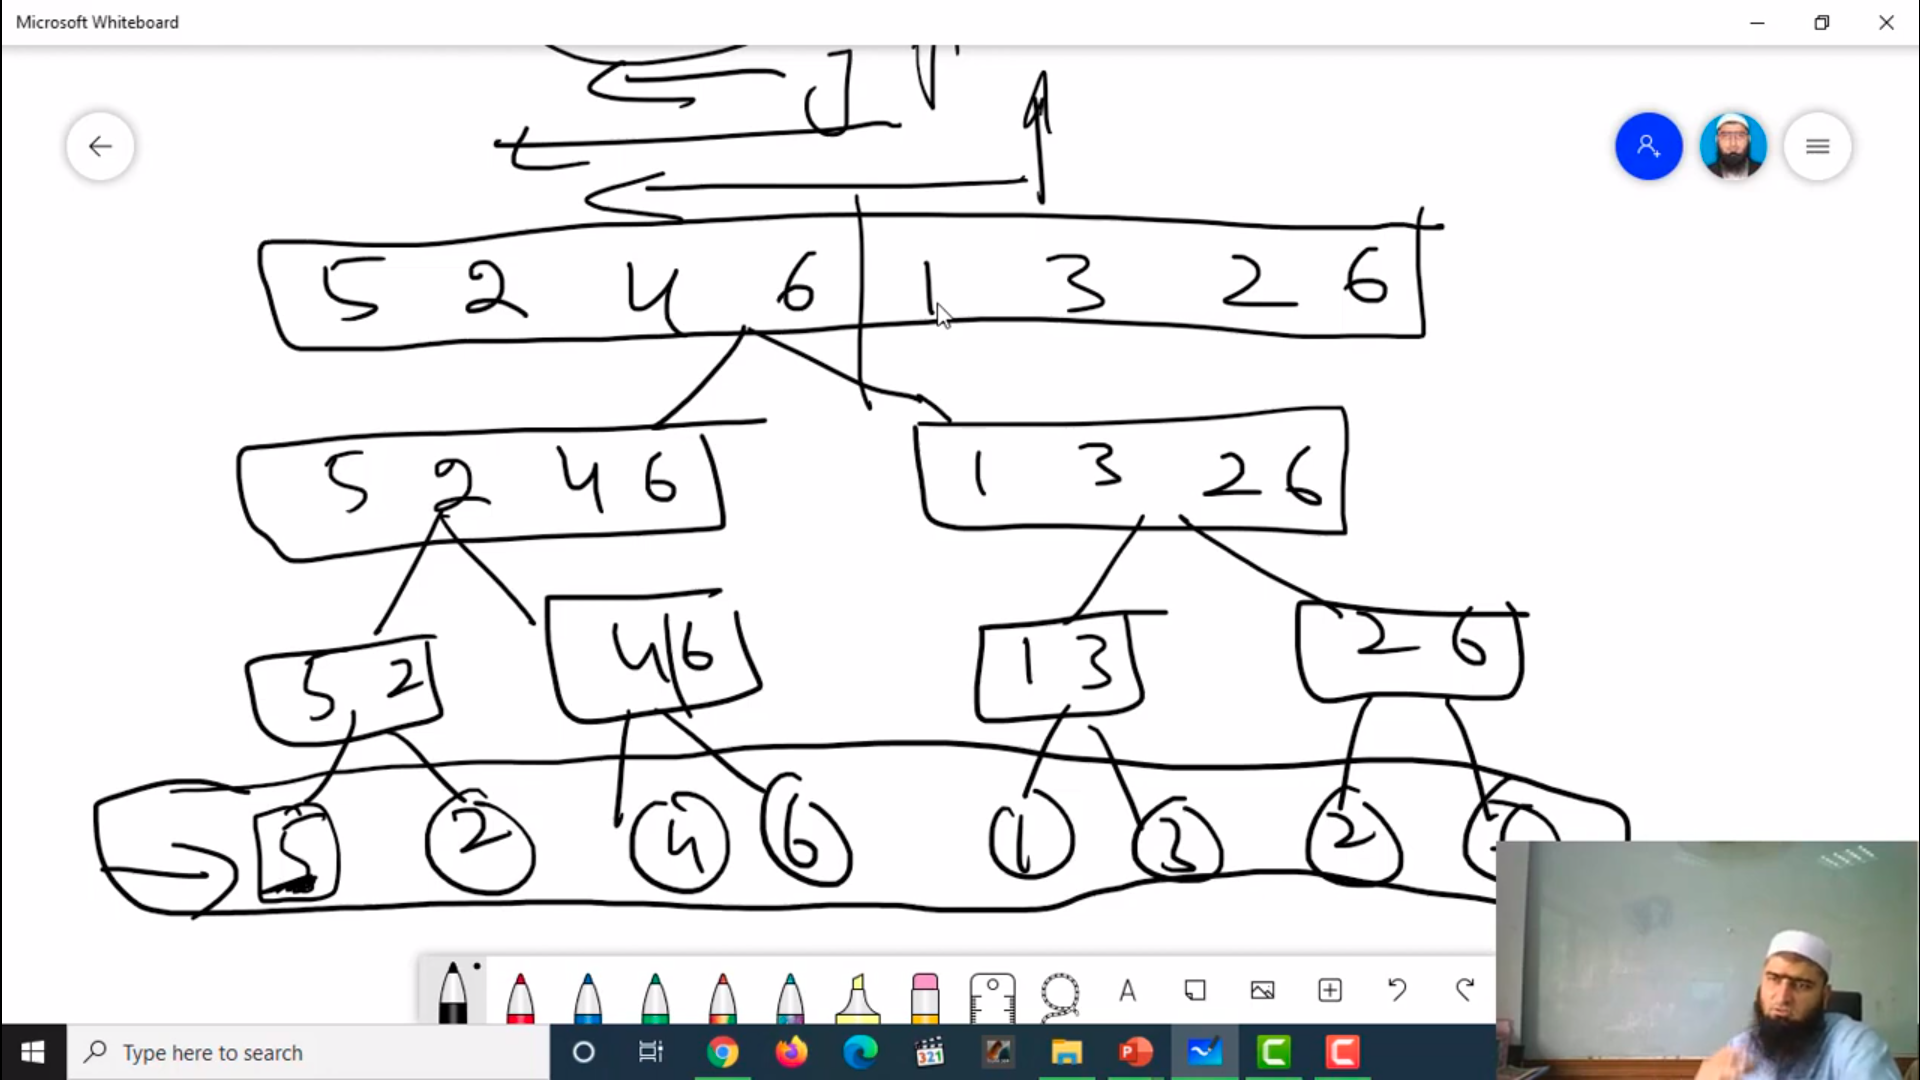 Microsoft Whiteboard
J
5 2 4 6 1 3 2 6
5 2 4 6
1 3 2 6
5 2
4 6
1 3
2 6
5 2 4 6 1 3 2
A
Type here to search
321
P
C
C